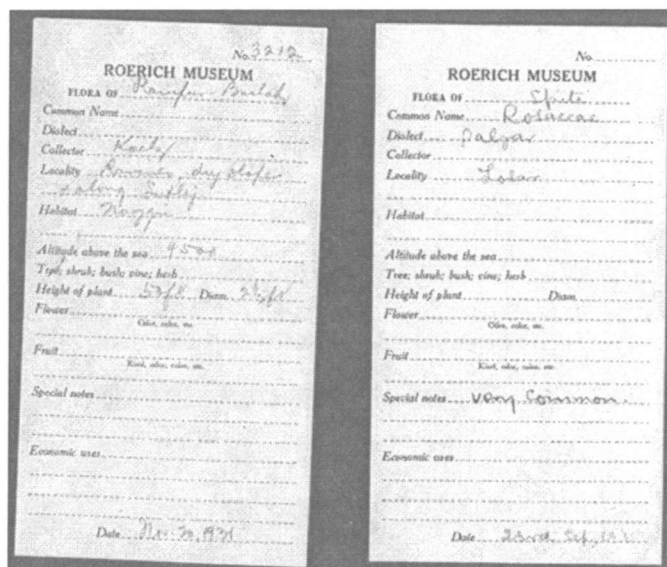 No. 3212
ROERICH MUSEUM
FLORA OF Rampur Bushahr
Common Name
Dialect
Collector Koelz
Locality dry slopes
along Sutlej
Habitat
Altitude above the sea 9500
Tree; shrub; bush; vine; herb
Height of plant Diam.
Flower
Odor, color, etc.
Fruit
Kind, odor, color, etc.
Special notes
Economic uses
Date Nov. 20, 1931
No.
ROERICH MUSEUM
FLORA OF Spiti
Common Name Rosaceae
Dialect Palgar
Collector
Locality Losar
Habitat
Altitude above the sea
Tree; shrub; bush; vine; herb
Height of plant Diam.
Flower
Odor, color, etc.
Fruit
Kind, odor, color, etc.
Special notes very common.
Economic uses
Date 23rd Sep.